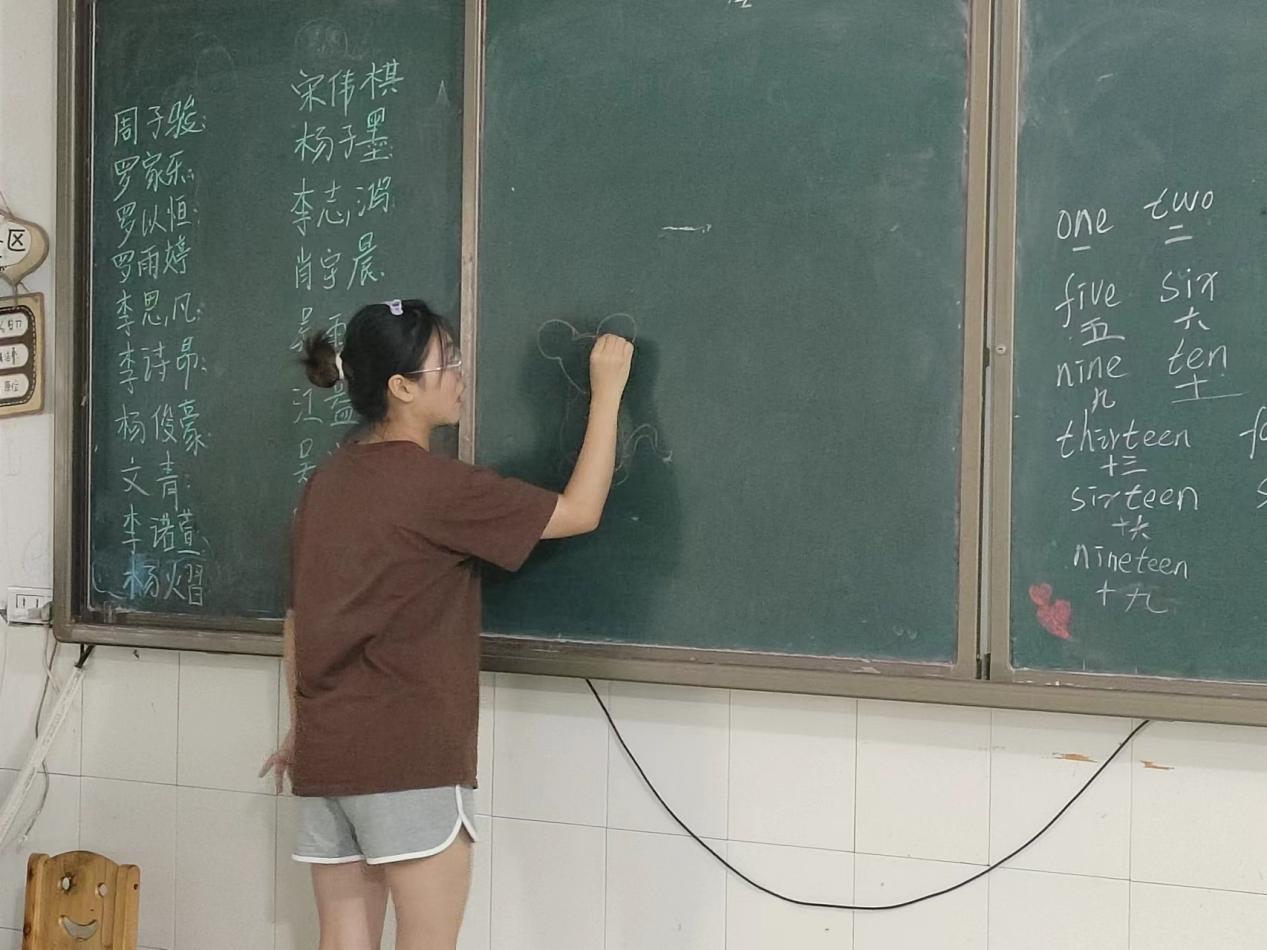 周子骏:
罗家乐:
罗以恒:
罗雨婷
李思凡:
李诗昂:
杨俊豪:
文青:
李诺萱:
杨熠
宋伟棋
杨子墨:
李志鸿
肖宇晨
一
one two
一 二
five six
五 六
nine ten
九 十
thirteen
十三
sixteen
十六
nineteen
十九
区